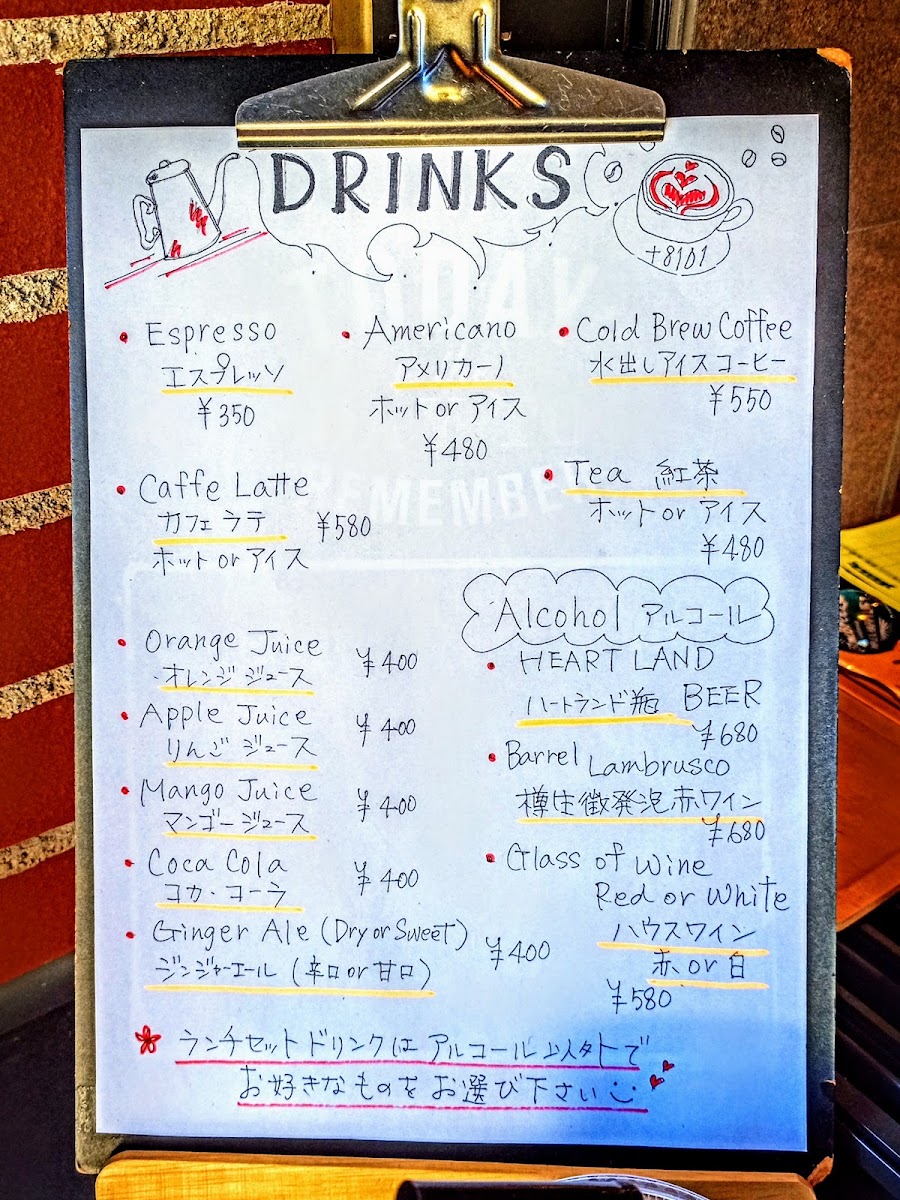 DRINKS
+81D1
• Espresso
エスプレッソ
¥350
• Americano
アメリカーノ
ホット or アイス
¥480
• Cold Brew Coffee
水出しアイスコーヒー
¥550
• Caffe Latte
カフェラテ ¥580
ホット or アイス
• Tea 紅茶
ホット or アイス
¥480
• Orange Juice ¥400
オレンジジュース
• Apple Juice ¥400
りんごジュース
• Mango Juice ¥400
マンゴージュース
• Coca Cola ¥400
コカ・コーラ
• Ginger Ale (Dry or Sweet) ¥400
ジンジャーエール (辛口 or 甘口)
Alcohol アルコール
• HEART LAND
ハートランド瓶 BEER
¥680
• Barrel Lambrusco
樽生微発泡赤ワイン
¥680
• Glass of Wine
Red or White
ハウスワイン
赤 or 白
¥580
ランチセットドリンクはアルコール以外で
お好きなものをお選び下さい